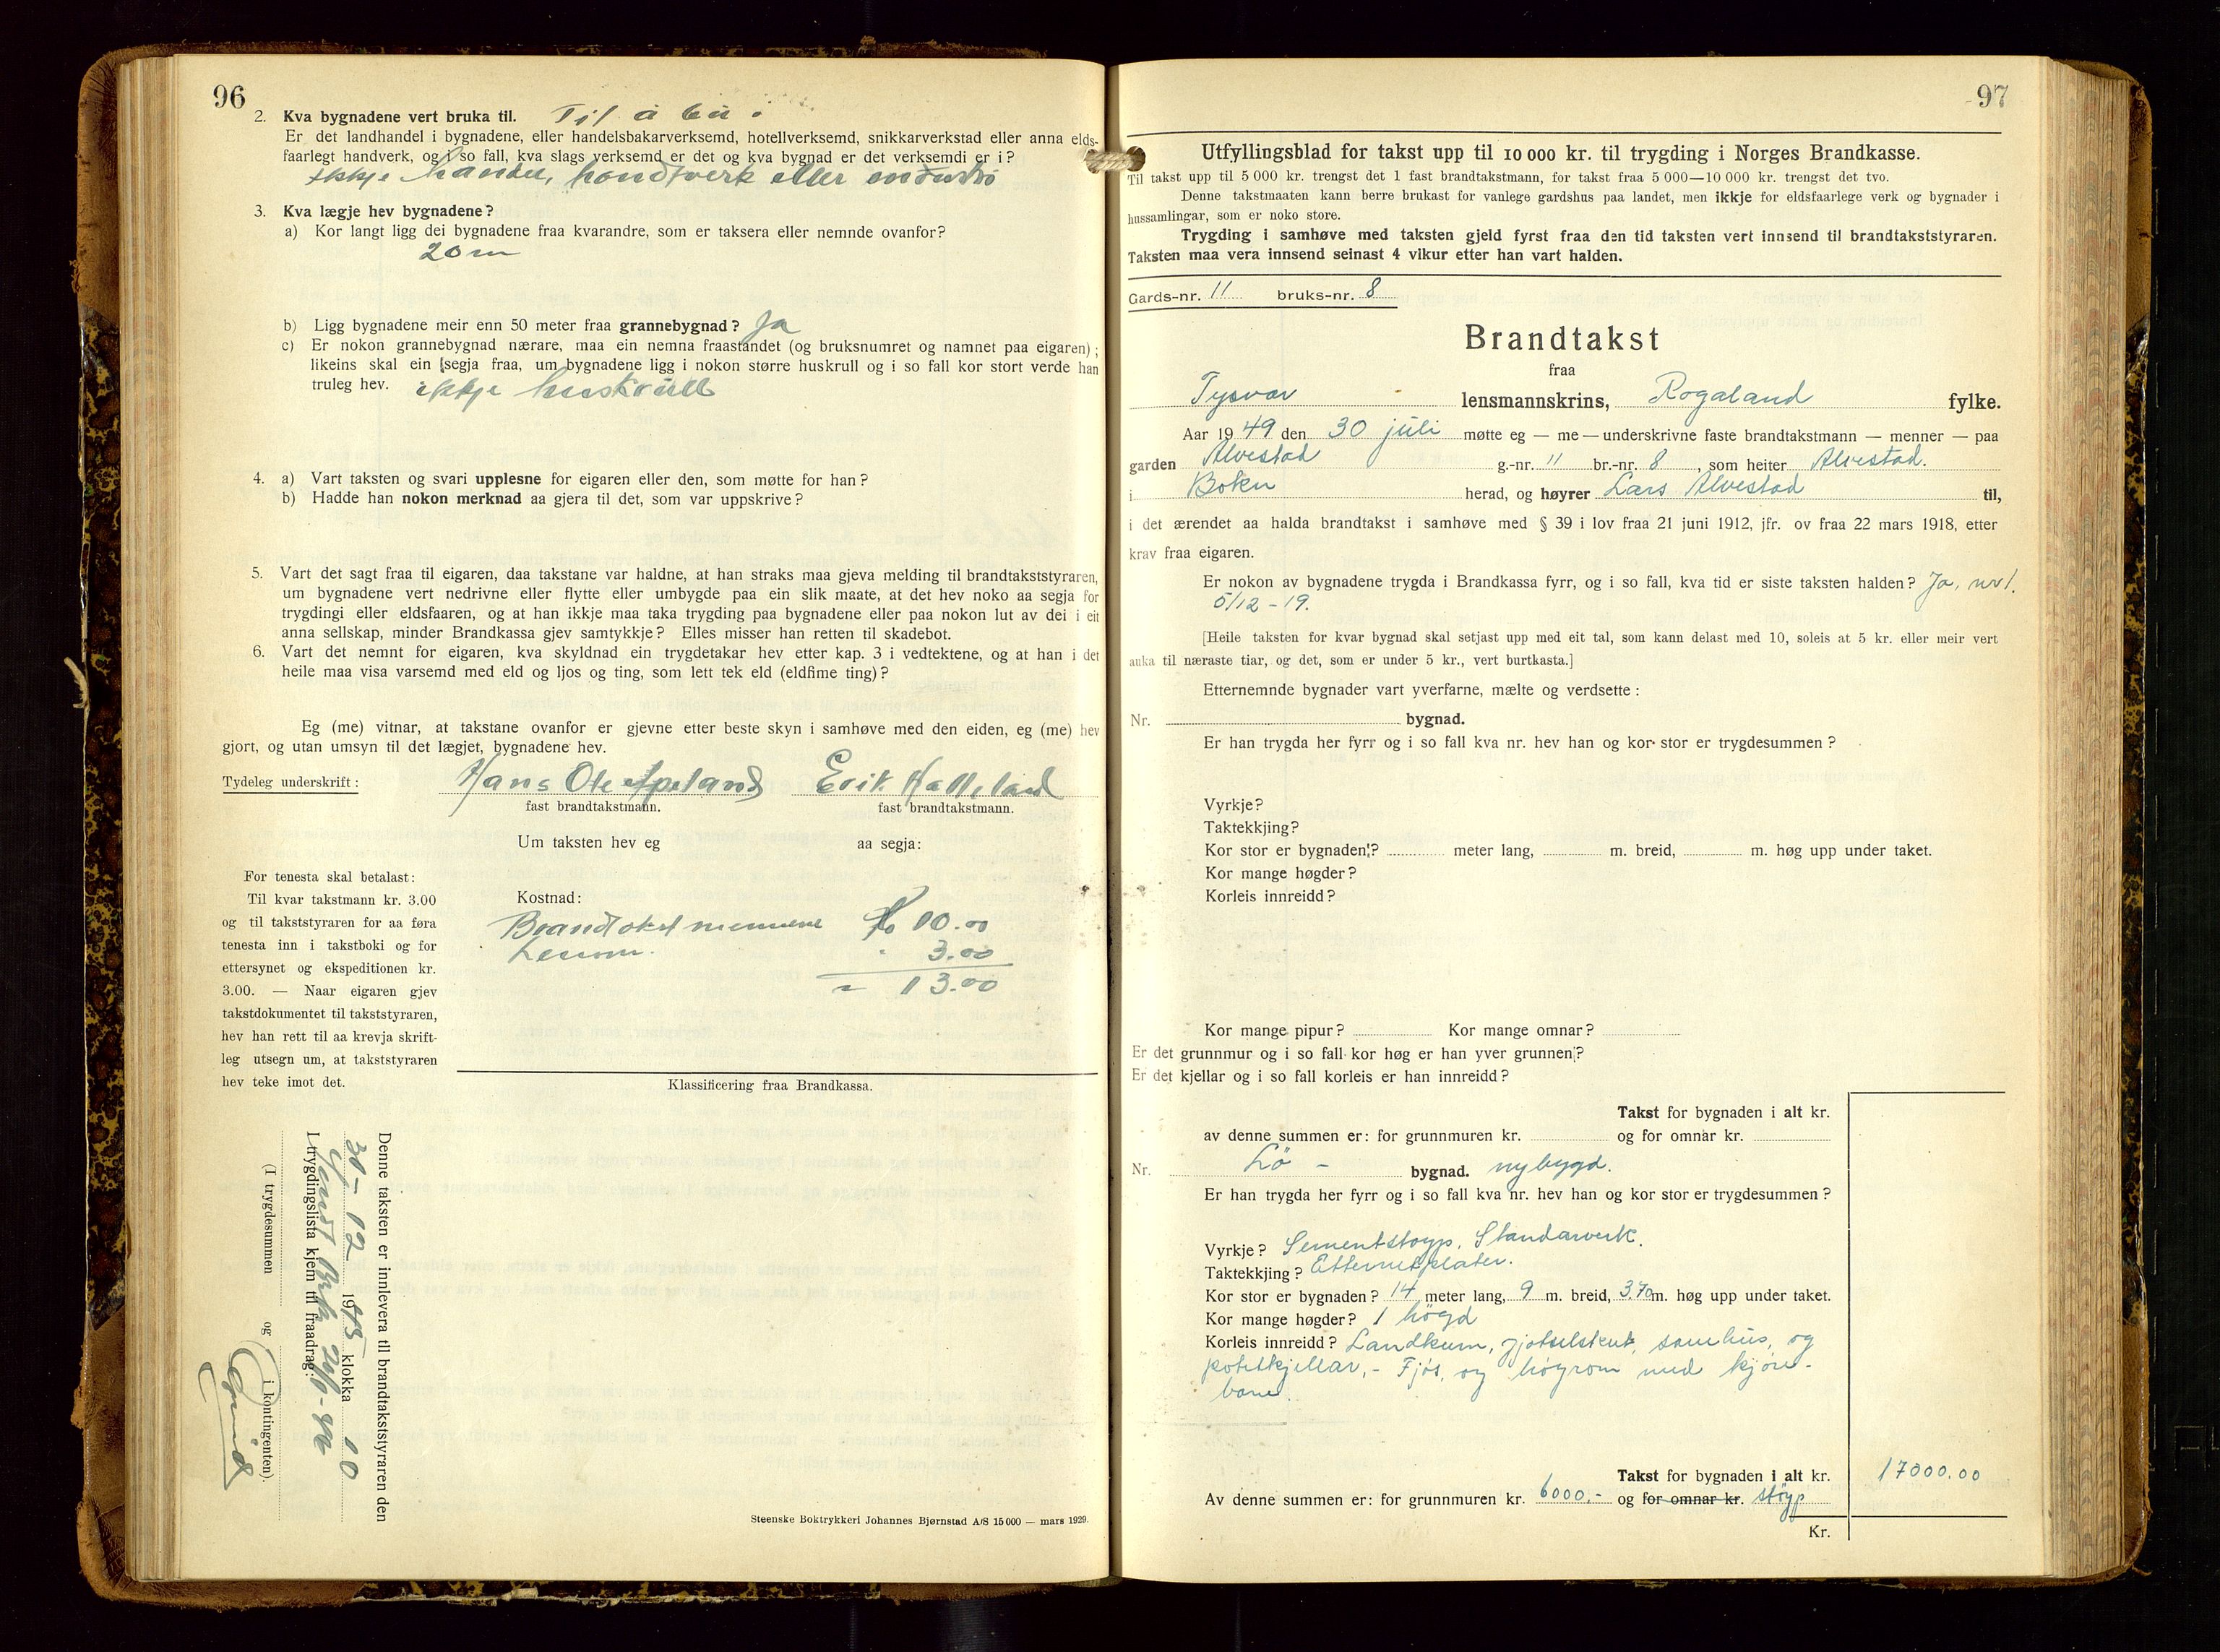 96
2. Kva bygnadene vert bruka til. Til å bu i
Er det landhandel i bygnadene, eller handelsbakarverksemd, hotellverksemd, snikkarverkstad eller anna elds-
faarlegt handverk, og i so fall, kva slags verksemd er det og kva bygnad er det verksemdi er i?
Ikkje handel, handverk eller industri
3. Kva lægje hev bygnadene?
a) Kor langt ligg dei bygnadene fraa kvarandre, som er taksera eller nemnde ovanfor?
20 m
b) Ligg bygnadene meir enn 50 meter fraa grannebygnad? Ja
c) Er nokon grannebygnad nærare, maa ein nemna fraastandet (og bruksnumret og namnet paa eigaren);
likeins skal ein segja fraa, um bygnadene ligg i nokon større huskrull og i so fall kor stort verde han
truleg hev. ikkje huskrull
4. a) Vart taksten og svari upplesne for eigaren eller den, som møtte for han?
b) Hadde han nokon merknad aa gjera til det, som var uppskrive?
5. Vart det sagt fraa til eigaren, daa takstane var haldne, at han straks maa gjeva melding til brandtakststyraren,
um bygnadene vert nedrivne eller flytte eller umbygde paa ein slik maate, at det hev noko aa segja for
trygdingi eller eldsfaaren, og at han ikkje maa taka trygding paa bygnadene eller paa nokon lut av dei i eit
anna sellskap, minder Brandkassa gjev samtykkje? Elles misser han retten til skadebot.
6. Vart det nemnt for eigaren, kva skyldnad ein trygdetakar hev etter kap. 3 i vedtektene, og at han i det
heile maa visa varsemd med eld og ljos og ting, som lett tek eld (eldfime ting)?
Eg (me) vitnar, at takstane ovanfor er gjevne etter beste skyn i samhøve med den eiden, eg (me) hev
gjort, og utan umsyn til det lægjet, bygnadene hev.
Tydeleg underskrift: Hans Ole Apeland Erik Halleland
fast brandtakstmann. fast brandtakstmann.
Um taksten hev eg aa segja:
For tenesta skal betalast:
Til kvar takstmann kr. 3.00
og til takststyraren for aa føra
tenesta inn i takstboki og for
ettersynet og ekspeditionen kr.
3.00. — Naar eigaren gjev
takstdokumentet til takststyraren,
hev han rett til aa krevja skrift-
leg utsegn um, at takststyraren
hev teke imot det.
Kostnad:
Brandtakstmennene Kr 10.00
Lensm. " 3.00
= 13.00
Klassificering fraa Brandkassa.
Denne taksten er innlevera til brandtakststyraren den
30-12 1945 klokka 10
I trygdingslista kjem til fraadrag:
(I trygdesummen og i kontingenten).
Steenske Boktrykkeri Johannes Bjørnstad A/S 15 000 — mars 1929.
97
Utfyllingsblad for takst upp til 10 000 kr. til trygding i Norges Brandkasse.
Til takst upp til 5 000 kr. trengst det 1 fast brandtakstmann, for takst fraa 5 000—10 000 kr. trengst det tvo.
Denne takstmaaten kann berre brukast for vanlege gardshus paa landet, men ikkje for eldsfaarlege verk og bygnader i
hussamlingar, som er noko store.
Trygding i samhøve med taksten gjeld fyrst fraa den tid taksten vert innsend til brandtakststyraren.
Taksten maa vera innsend seinast 4 vikur etter han vart halden.
Gards-nr. 11 bruks-nr. 8
Brandtakst
fraa
Tysvær lensmannskrins, Rogaland fylke.
Aar 1949 den 30 juli møtte eg — me — underskrivne faste brandtakstmann — menner — paa
garden Alvestad g.-nr. 11 br.-nr. 8, som heiter Alvestad.
i Bokn herad, og høyrer Lars Alvestad til,
i det ærendet aa halda brandtakst i samhøve med § 39 i lov fraa 21 juni 1912, jfr. ov fraa 22 mars 1918, etter
krav fraa eigaren.
Er nokon av bygnadene trygda i Brandkassa fyrr, og i so fall, kva tid er siste taksten halden? Ja, nr 1.
5/12 - 19.
[Heile taksten for kvar bygnad skal setjast upp med eit tal, som kann delast med 10, soleis at 5 kr. eller meir vert
auka til næraste tiar, og det, som er under 5 kr., vert burtkasta.]
Etternemnde bygnader vart yverfarne, mælte og verdsette:
Nr. bygnad.
Er han trygda her fyrr og i so fall kva nr. hev han og kor stor er trygdesummen?
Vyrkje?
Taktekkjing?
Kor stor er bygnaden? meter lang, m. breid, m. høg upp under taket.
Kor mange høgder?
Korleis innreidd?
Kor mange pipur? Kor mange omnar?
Er det grunnmur og i so fall kor høg er han yver grunnen?
Er det kjellar og i so fall korleis er han innreidd?
Takst for bygnaden i alt kr.
av denne summen er: for grunnmuren kr. og for omnar kr.
Nr. Lö - bygnad. nybygd.
Er han trygda her fyrr og i so fall kva nr. hev han og kor stor er trygdesummen?
Vyrkje? Sementstøyp. Standarverk.
Taktekkjing? Etternitplater.
Kor stor er bygnaden? 14 meter lang, 9 m. breid, 3,70 m. høg upp under taket.
Kor mange høgder? 1 högd
Korleis innreidd? Landkum, gjotselskut, saubus, og
potetkjellar, - Fjös, og høyrom med kjøre-
bane.
Takst for bygnaden i alt kr. 17000.00
Av denne summen er: for grunnmuren kr. 6000.- og for omnar kr. støyp
Kr.